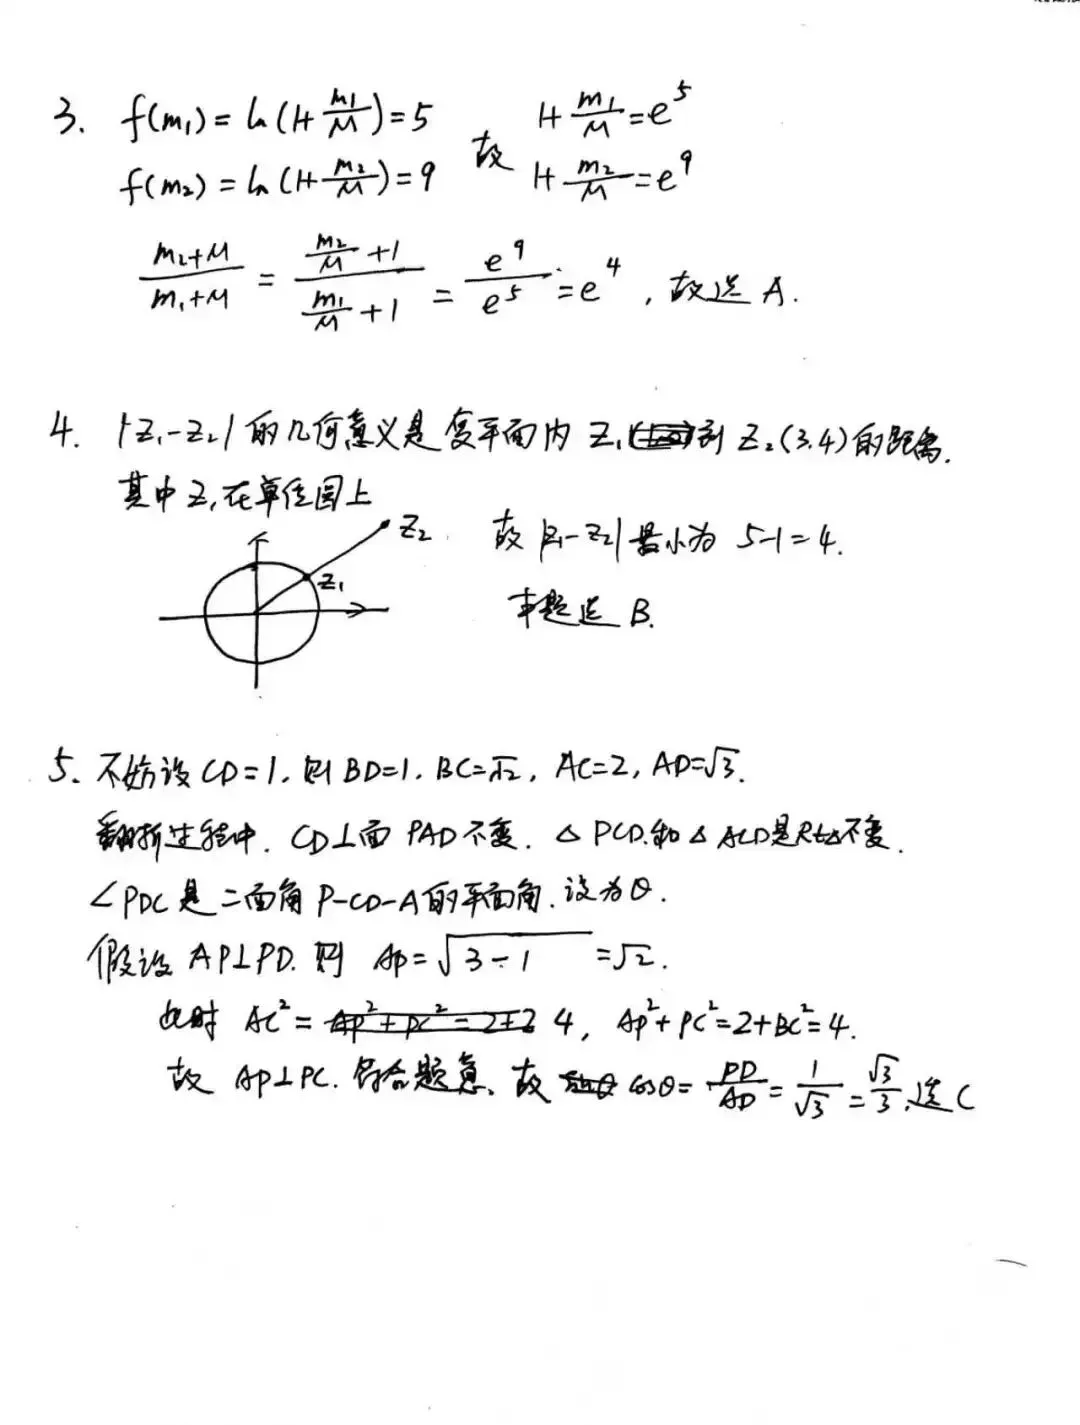 3. f(m₁) = ln(1+m₁/M) = 5 故 1+m₁/M = e⁵
f(m₂) = ln(1+m₂/M) = 9 1+m₂/M = e⁹
(m₂+M)/(m₁+M) = (m₂/M+1)/(m₁/M+1) = e⁹/e⁵ = e⁴, 故选 A.
4. |Z₁-Z₂| 的几何意义是复平面内 Z₁ 到 Z₂(3.4) 的距离.
其中 Z₁ 在单位圆上
Z₂
Z₁
故 |Z₁-Z₂| 最小为 5-1=4.
本题选 B.
5. 不妨设 CD=1. 则 BD=1. BC=√2, AC=2, AD=√3.
翻折过程中. CD⊥面 PAD 不变. △PCD.和△ACD是Rt△不变.
∠PDC 是二面角 P-CD-A 的平面角. 设为θ.
假设 AP⊥PD. 则 AP=√(3-1) =√2.
此时 AC²= 4, AP²+PC²=2+BC²=4.
故 AP⊥PC. 符合题意. 故 cosθ= PD/AD = 1/√3 = √3/3. 选 C